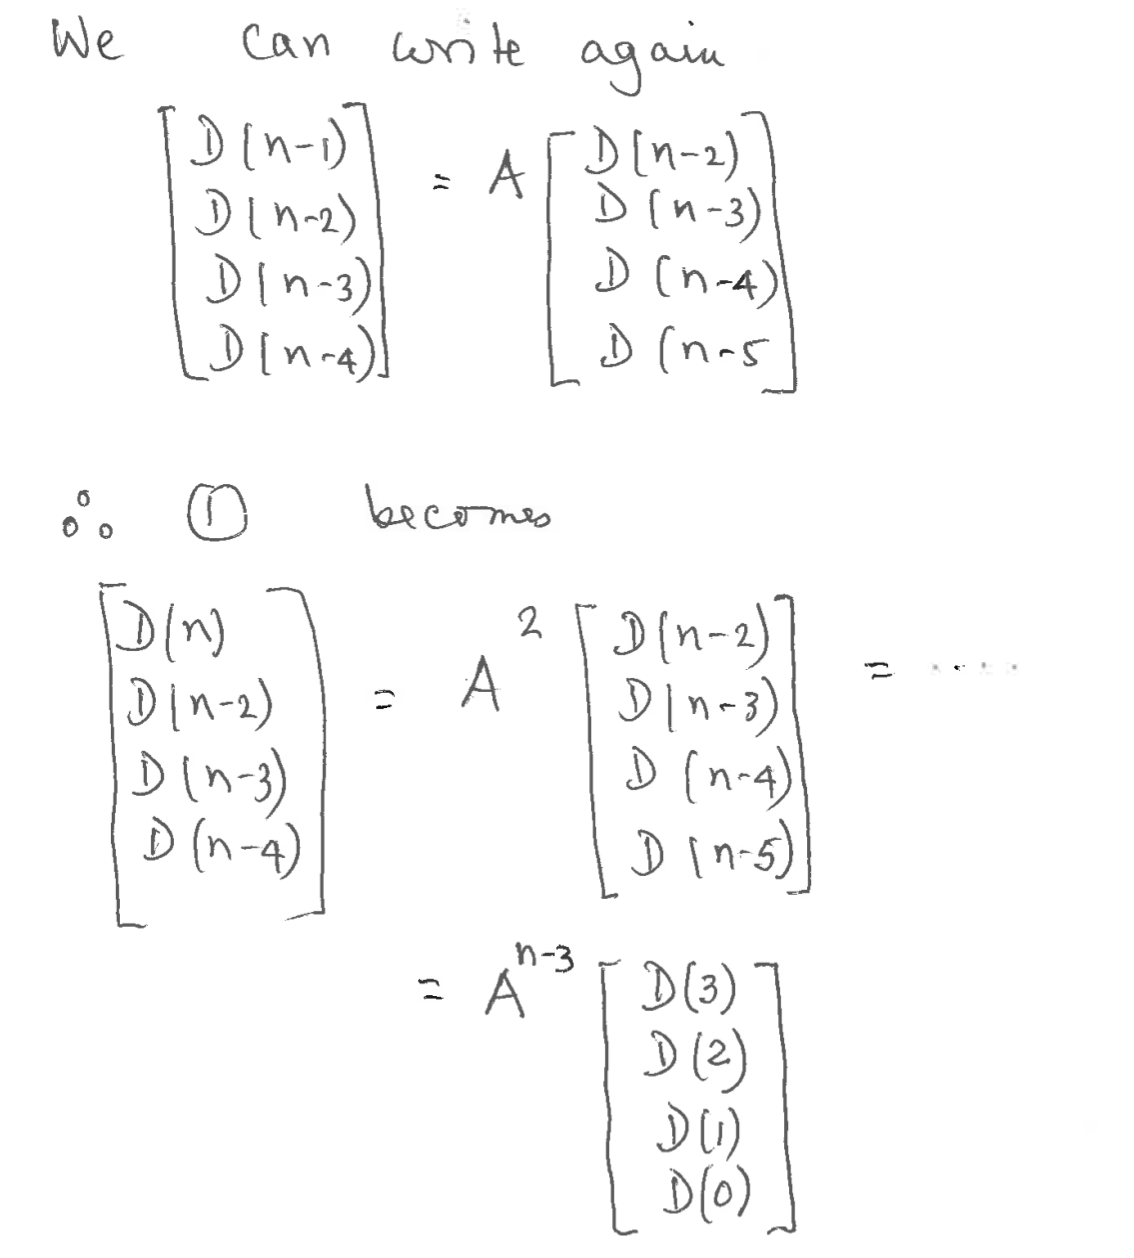 We can write again
[D(n-1) D(n-2) D(n-3) D(n-4)] = A [D(n-2) D(n-3) D(n-4) D(n-5]
∴ ① becomes
[D(n) D(n-2) D(n-3) D(n-4)] = A² [D(n-2) D(n-3) D(n-4) D(n-5)] = ....
= Aⁿ⁻³ [D(3) D(2) D(1) D(0)]